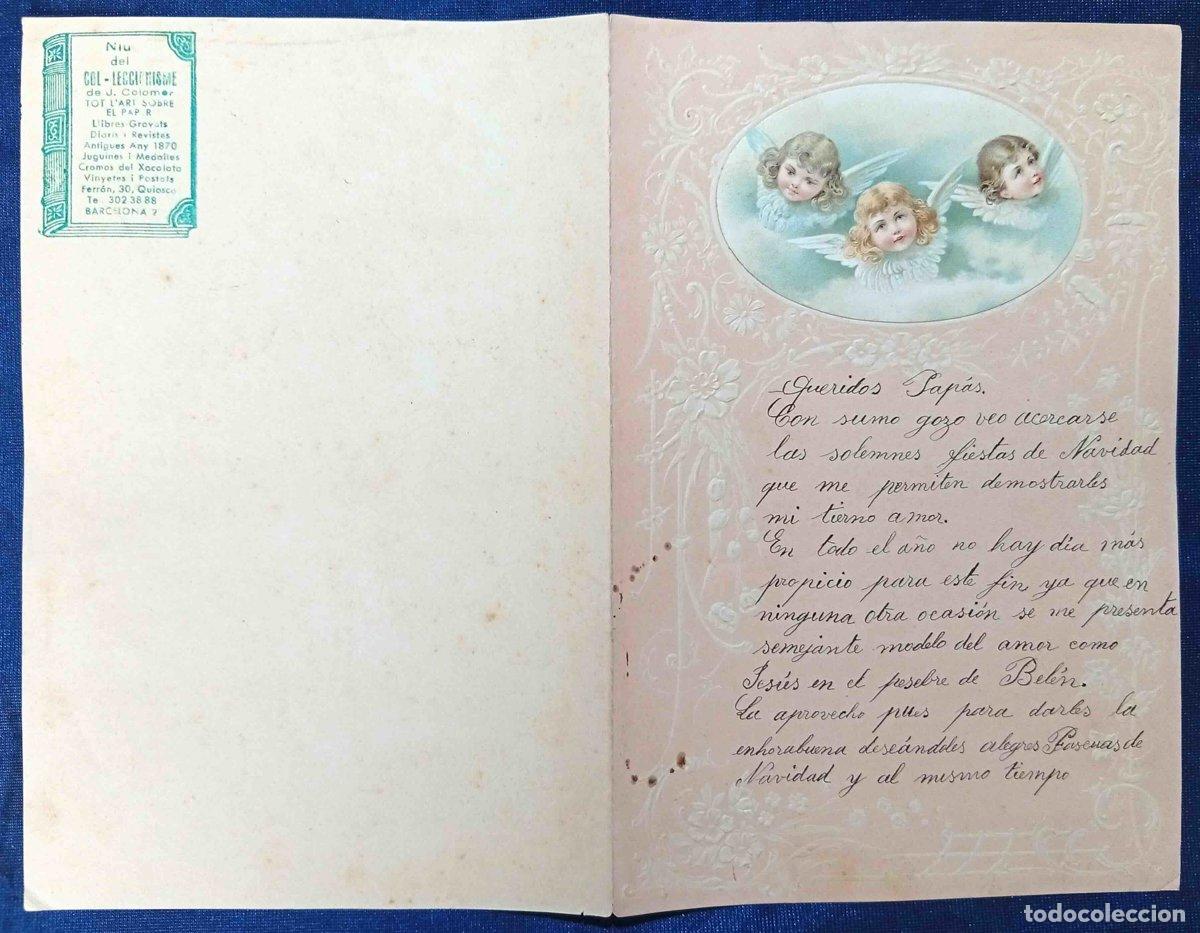 Niu
del
COL-LECCIONISME
de J. Colomer
TOT L'ART SOBRE
EL PAPER
Llibres Gravats
Diaris i Revistes
Antigues Any 1870
Juguines i Medalles
Cromos del Xocolata
Vinyetes i Postals
Ferrán, 30, Quiosco
Te. 302 38 88
BARCELONA 2
Queridos Papás.
Con sumo gozo veo acercarse
las solemnes fiestas de Navidad
que me permiten demostrarles
mi tierno amor.
En todo el año no hay día más
propicio para este fin, ya que en
ninguna otra ocasión se me presenta
semejante modelo del amor como
Jesús en el pesebre de Belén.
La aprovecho pues para darles la
enhorabuena deseándoles alegres Pascuas de
Navidad y al mismo tiempo
todocoleccion